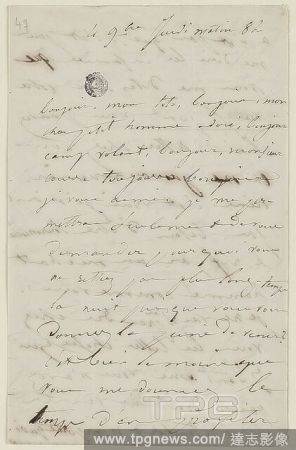 47
4 9bre Jeudi matin 8h
bonjour, mon toto, bonjour, mon
cher petit homme adoré, bonjour
camp volant, bonjour, monsieur
toujours
je vous aime je me per-
mettrai d'abord de vous
demander pourquoi vous
ne restez pas plus long-temps
la nuit puisque vous vous
donnez la peine de venir ?
C'est bien le moins que
vous me donniez le
temps d'en profiter
TPG
www.tpgnews.com/達志影像